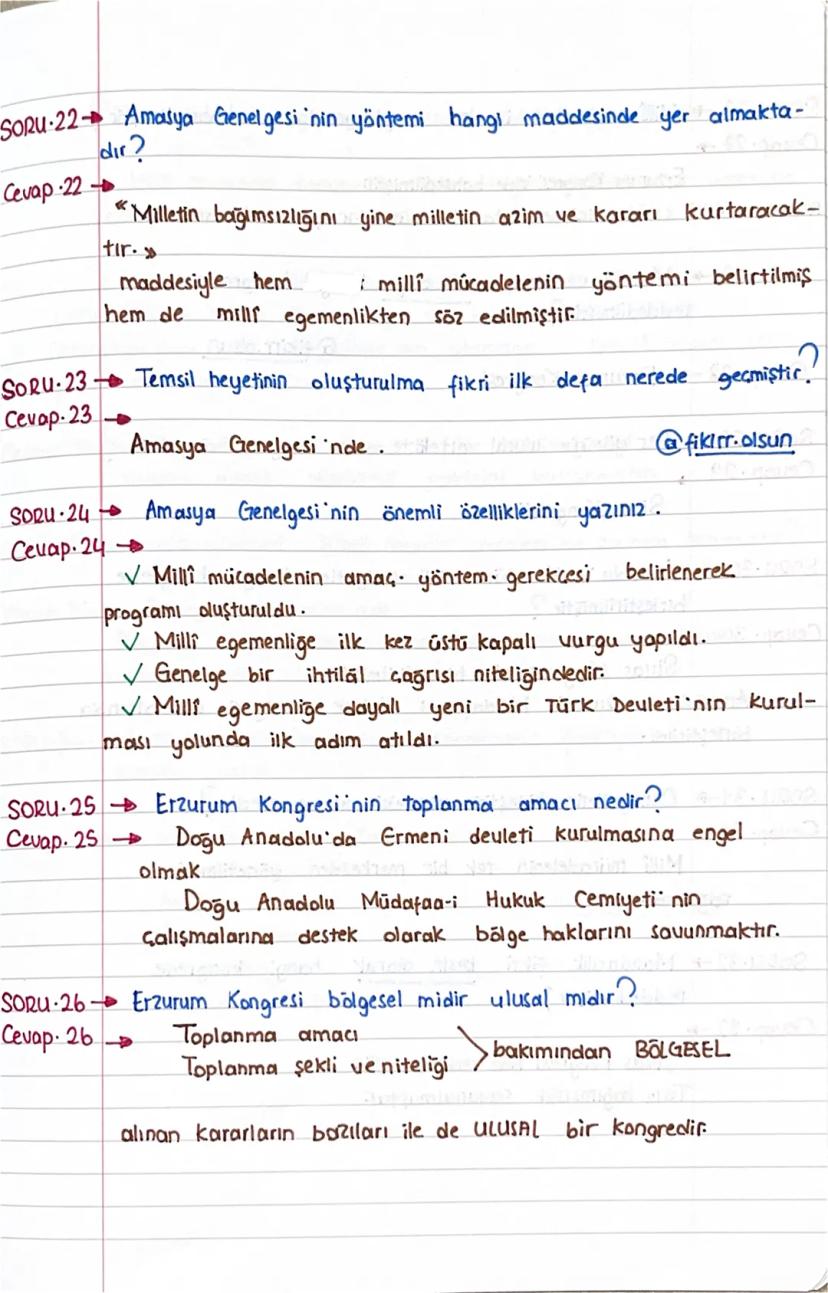 SORU.22→ Amasya Genelgesi'nin yöntemi hangi maddesinde yer almakta-
dır?
Cevap.22→
"Milletin bağımsızlığını yine milletin azim ve kararı kurtaracak-
tır.»
maddesiyle hem : millî mücadelenin yöntemi belirtilmiş
hem de millî egemenlikten söz edilmiştir.
SORU.23→ Temsil heyetinin oluşturulma fikri ilk defa nerede geçmiştir?
Cevap.23→
Amasya Genelgesi'nde.
@fikirr.olsun
SORU.24→ Amasya Genelgesi'nin önemli özelliklerini yazınız.
Cevap.24→
✓ Millî mücadelenin amaç. yöntem. gerekçesi belirlenerek
programı oluşturuldu.
✓ Millî egemenliğe ilk kez üstü kapalı vurgu yapıldı.
✓ Genelge bir ihtilâl çağrısı niteliğindedir.
✓ Millî egemenliğe dayalı yeni bir Türk Devleti'nin kurul-
ması yolunda ilk adım atıldı.
SORU.25→ Erzurum Kongresi'nin toplanma amacı nedir?
Cevap.25→ Doğu Anadolu'da Ermeni devleti kurulmasına engel
olmak
Doğu Anadolu Müdafaa-i Hukuk Cemiyeti'nin
çalışmalarına destek olarak bölge haklarını savunmaktır.
SORU.26→ Erzurum Kongresi bölgesel midir ulusal mıdır?
Cevap.26→ Toplanma amacı
Toplanma şekli ve niteliği > bakımından BÖLGESEL
alınan kararların bazıları ile de ULUSAL bir kongredir.